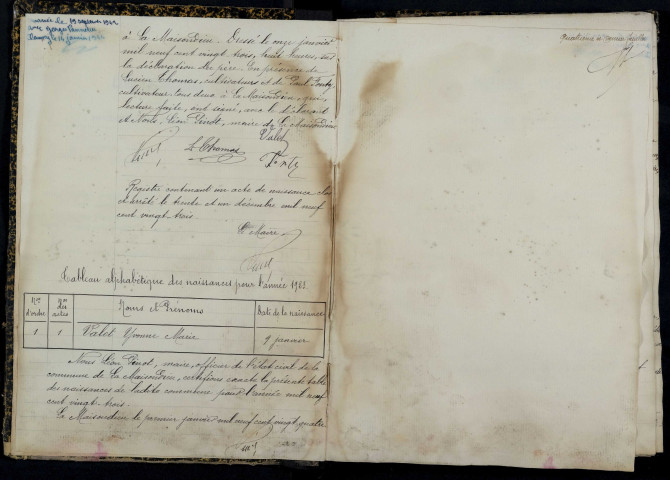 mariée le 19 1942
avec Georges
le 14 janvier 1943
à La Maisondieu. Dressé le onze janvier
mil neuf cent vingt trois, huit heures, sur
la déclaration du père. En présence de
Lucien Thomas, cultivateur et de Paul
cultivateur tous deux à La Maisondieu qui,
lecture faite, ont signé, avec le déclarant
et Nous, Léon Penot, maire de La Maisondieu
Valet
L Thomas
Registre contenant un acte de naissance clos
et arrêté le trente et un décembre mil neuf
cent vingt trois.
Le Maire
Tableau alphabétique des naissances pour l'année 1923.
Nos d'ordre
Nos des actes
Noms et Prénoms
Date de la naissance
1 1 Valet Yvonne Marie 9 janvier
Nous Léon Penot, maire, officier de l'état civil de la
commune de La Maisondieu, certifions exacte la présente table
des naissances de ladite commune pour l'année mil neuf
cent vingt trois.
La Maisondieu le premier janvier mil neuf cent vingt quatre